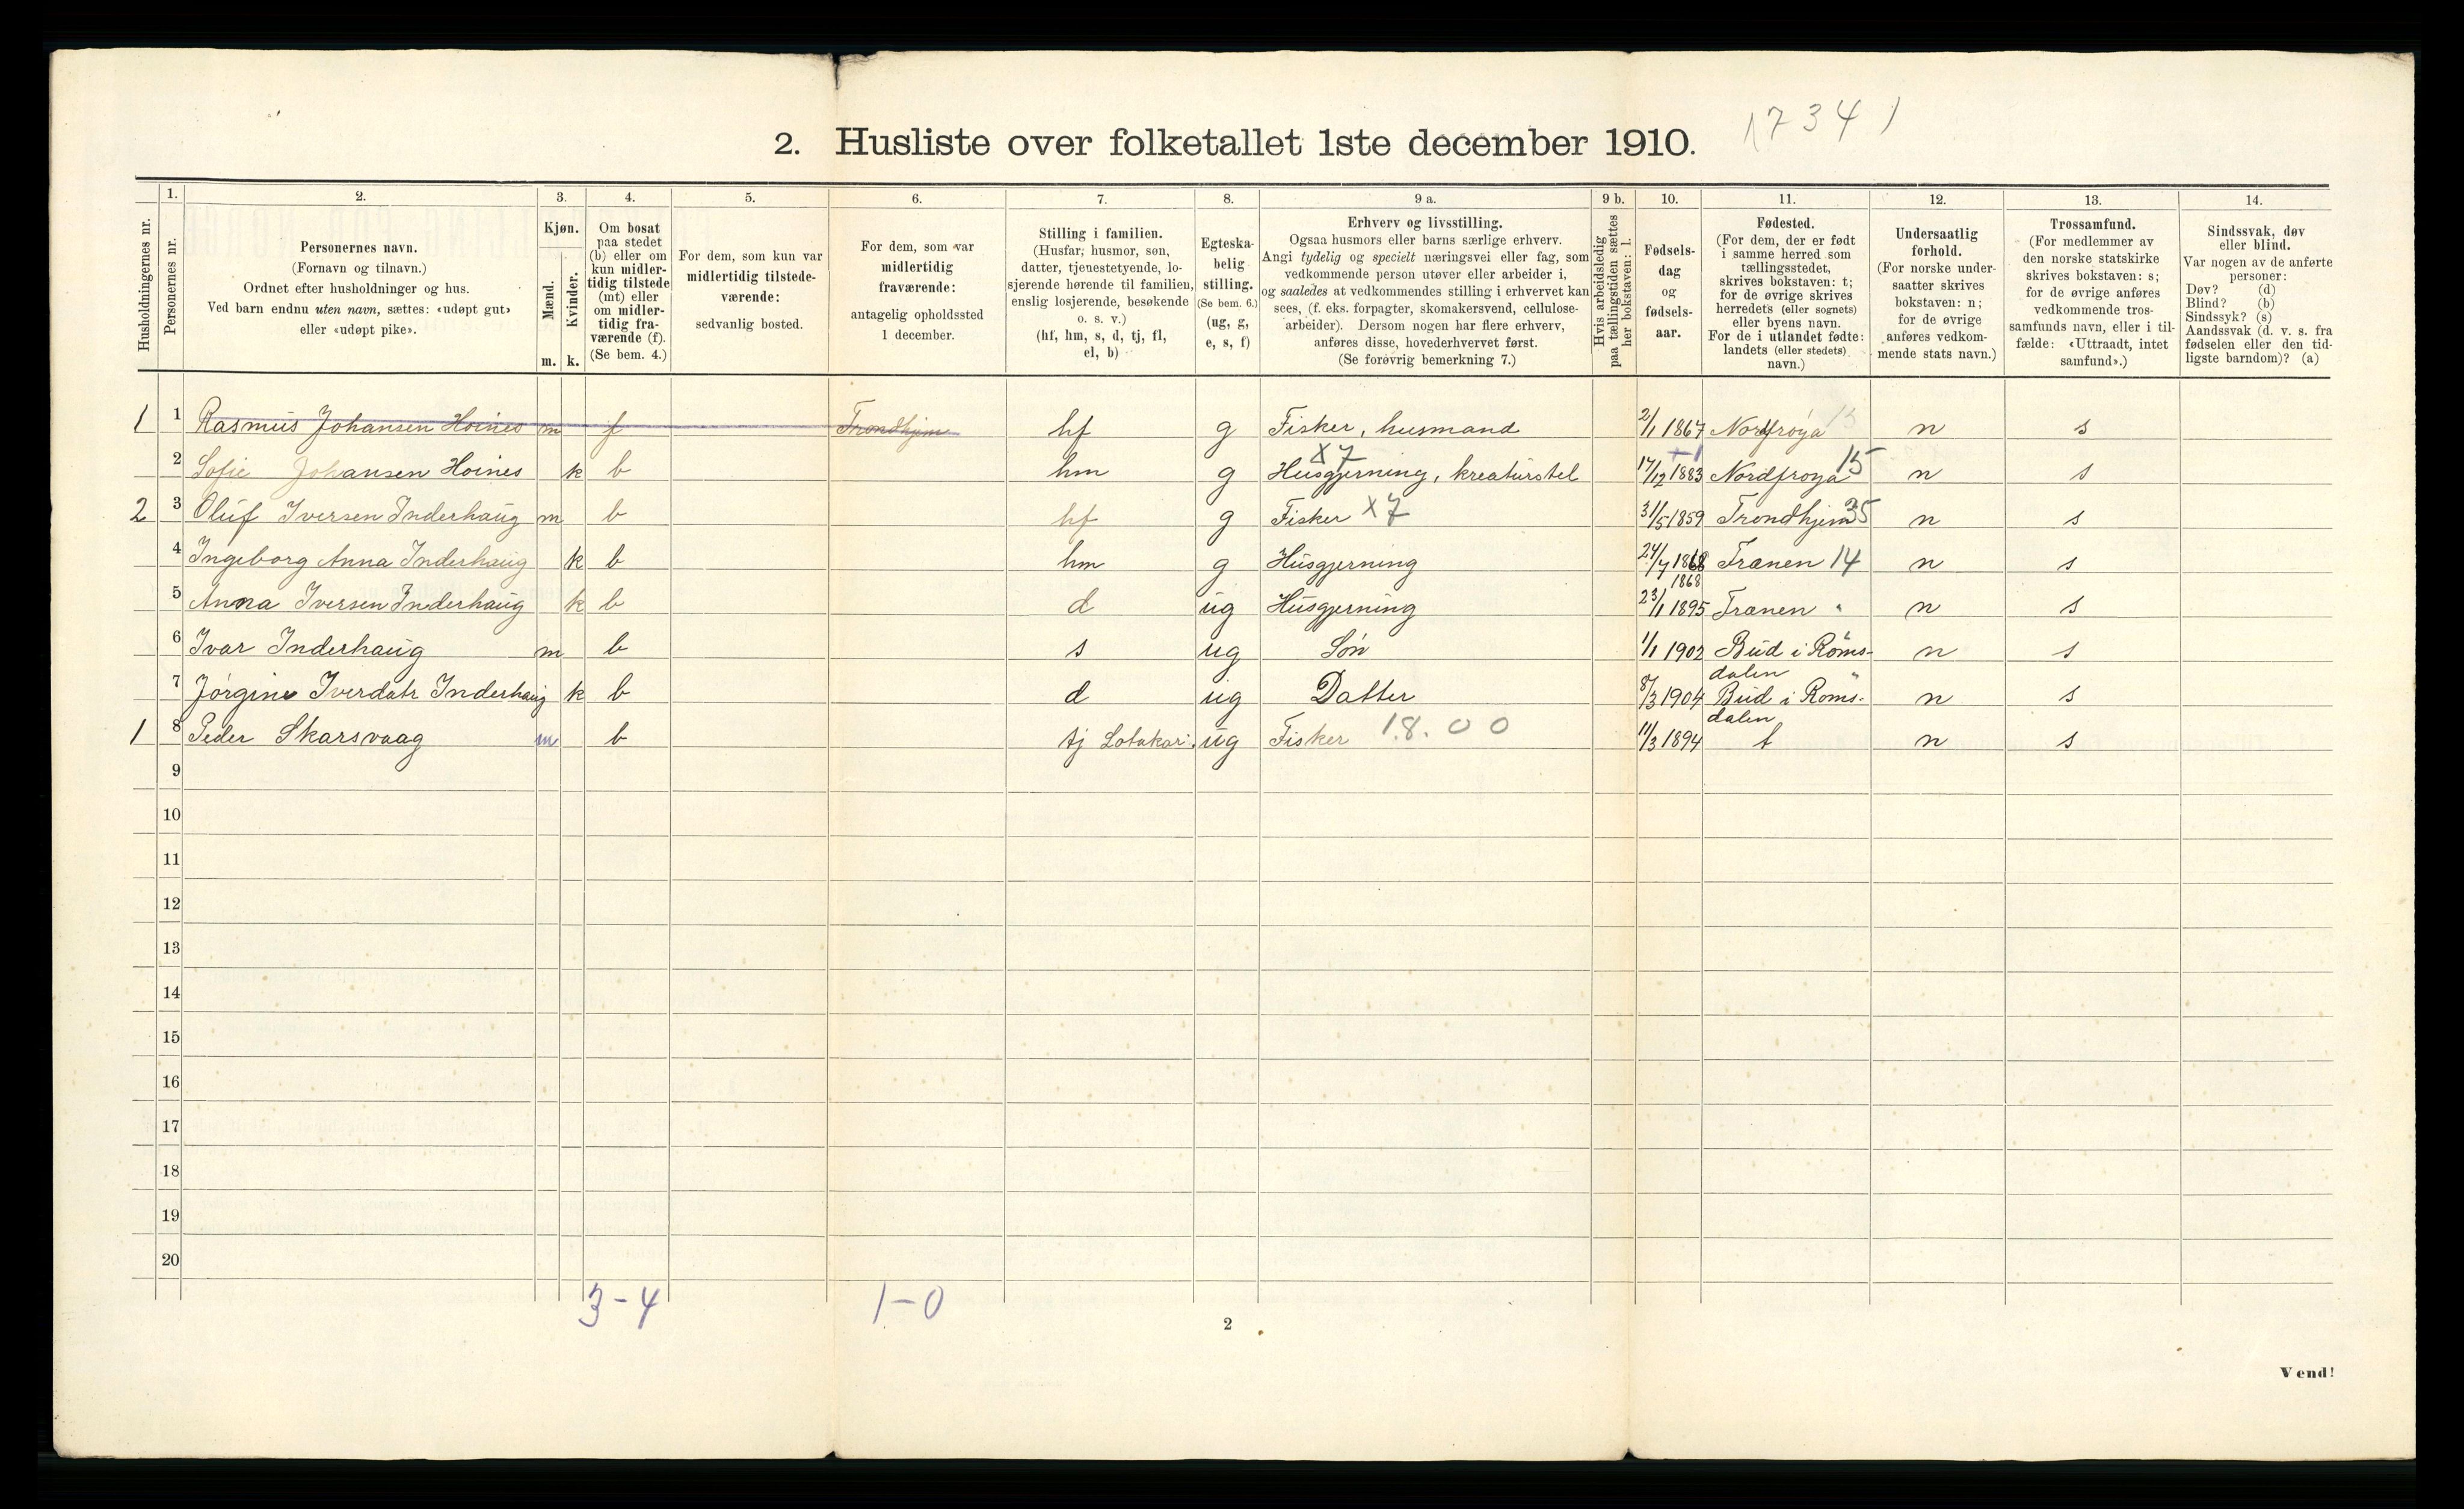 (734)
2. Husliste over folketallet 1ste december 1910.
Husholdningernes nr.
1.
Personernes nr.
2.
Personernes navn.
(Fornavn og tilnavn.)
Ordnet efter husholdninger og hus.
Ved barn endnu uten navn, sættes: «udøpt gut»
eller «udøpt pike».
3.
Kjøn.
Mænd.
Kvinder.
m. k.
4.
Om bosat
paa stedet
(b) eller om
kun midler-
tidig tilstede
(mt) eller
om midler-
tidig fra-
værende (f).
(Se bem. 4.)
5.
For dem, som kun var
midlertidig tilstede-
værende:
sedvanlig bosted.
6.
For dem, som var
midlertidig
fraværende:
antagelig opholdssted
1 december.
7.
Stilling i familien.
(Husfar, husmor, søn,
datter, tjenestetyende, lo-
sjerende hørende til familien,
enslig losjerende, besøkende
o. s. v.)
(hf, hm, s, d, tj, fl,
el, b)
8.
Egteska-
belig
stilling.
(Se bem. 6.)
(ug, g,
e, s, f)
9 a.
Erhverv og livsstilling.
Ogsaa husmors eller barns særlige erhverv.
Angi tydelig og specielt næringsvei eller fag, som
vedkommende person utøver eller arbeider i,
og saaledes at vedkommendes stilling i erhvervet kan
sees, (f. eks. forpagter, skomakersvend, cellulose-
arbeider). Dersom nogen har flere erhverv,
anføres disse, hovederhvervet først.
(Se forøvrig bemerkning 7.)
9 b.
Hvis arbeidsledig
paa tællingstiden sættes
her bokstaven: l.
10.
Fødsels-
dag
og
fødsels-
aar.
11.
Fødested.
(For dem, der er født
i samme herred som
tællingsstedet,
skrives bokstaven: t;
for de øvrige skrives
herredets (eller sognets)
eller byens navn.
For de i utlandet fødte:
landets (eller stedets)
navn.)
12.
Undersaatlig
forhold.
(For norske under-
saatter skrives
bokstaven: n;
for de øvrige
anføres vedkom-
mende stats navn.)
13.
Trossamfund.
(For medlemmer av
den norske statskirke
skrives bokstaven: s;
for de øvrige anføres
vedkommende tros-
samfunds navn, eller i til-
fælde: «Uttraadt, intet
samfund».)
14.
Sindssvak, døv
eller blind.
Var nogen av de anførte
personer:
Døv? (d)
Blind? (b)
Sindssyk? (s)
Aandssvak (d. v. s. fra
fødselen eller den tid-
ligste barndom)? (a)
1 1 Rasmus Johansen Hoines m f Trondhjem hf g Fisker, husmand 2/1 1867 Nordfrøya 15 n s
2 Sofie Johansen Hoines k b hm g Husgjerning, kreaturstel X7 17/12 1883 Nordfroya 15 n s
2 3 Oluf Iversen Inderhaug m b hf g Fisker X7 31/5 1859 Trondhjem 35 n s
4 Ingeborg Anna Inderhaug k b hm g Husgjerning 24/7 1868 1868 Trænen 14 n s
5 Anna Iversen Inderhaug k b d ug Husgjerning 23/1 1895 Trænen " n s
6 Ivar Inderhaug m b s ug Søn 1/1 1902 Bud i Roms-
dalen n s
7 Jørgine Iverdatr Inderhaug k b d ug Datter 8/3 1904 Bud i Roms-
dalen n s
1 8 Peder Skarsvaag m b tj ug Fisker 18.00 11/3 1894 t n s
9
10
11
12
13
14
15
16
17
18
19
20
3-4 1-0
2
Vend!